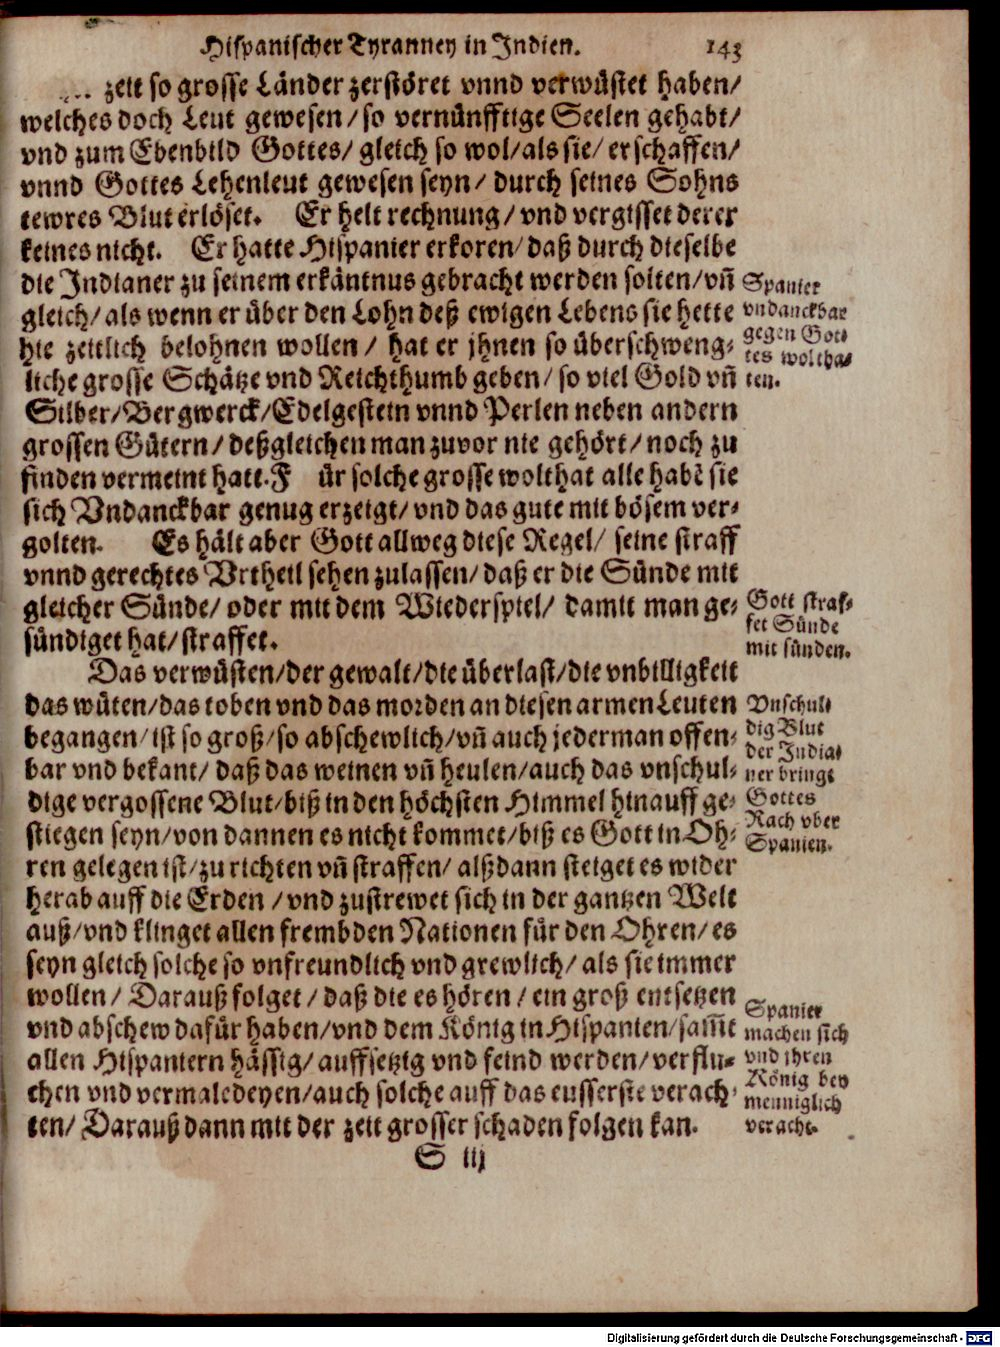 Hispanischer Tyranney in Indien. 143
zeit so grosse Länder zerstöret vnnd verwüstet haben/
welches doch Leut gewesen/ so vernünfftige Seelen gehabt/
vnd zum Ebenbild Gottes/ gleich so wol/ als sie/ erschaffen/
vnnd Gottes Lehenleut gewesen seyn/ durch seines Sohns
tewres Blut erlöset. Er helt rechnung/ vnd vergisset derer
keines nicht. Er hatte Hispanier erkoren/ daß durch dieselbe
die Indianer zu seinem erkäntnus gebracht werden solten/ vñ
gleich/ als wenn er über den Lohn deß ewigen Lebens sie hette
hie zeitlich belohnen wollen/ hat er jhnen so überschweng-
liche grosse Schätze vnd Reichthumb geben/ so viel Gold vñ
Silber/ Bergwerck/ Edelgestein vnnd Perlen neben andern
grossen Gütern/ deßgleichen man zuvor nie gehört/ noch zu
finden vermeint hatt. F ür solche grosse wolthat alle habẽ sie
sich Vndanckbar genug erzeigt/ vnd das gute mit bösem ver-
golten. Es hält aber Gott allweg diese Regel/ seine straff
vnnd gerechtes Vrtheil sehen zulassen/ daß er die Sünde mit
gleicher Sünde/ oder mit dem Wiederspiel/ damit man ge-
sündiget hat/ straffet.
Spanier
vndanckbar
gegen Got-
tes woltha-
ten.
Gott straf-
fet Sünde
mit sünden.
Das verwüsten/ der gewalt/ die überlast/ die vnbilligkeit
das wüten/ das toben vnd das morden an diesen armen Leuten
begangen/ ist so groß/ so abschewlich/ vñ auch jederman offen-
bar vnd bekant/ daß das weinen vñ heulen/ auch das vnschul-
dige vergossene Blut/ biß in den höchsten Himmel hinauff ge-
stiegen seyn/ von dannen es nicht kommet/ biß es Gott in Oh-
ren gelegen ist/ zu richten vñ straffen/ alßdann steiget es wider
herab auff die Erden/ vnd zustrewet sich in der gantzen Welt
auß/ vnd klinget allen frembden Nationen für den Ohren/ es
seyn gleich solche so vnfreundlich vnd grewlich/ als sie immer
wollen/ Darauß folget/ daß die es hören/ ein groß entsetzen
vnd abschew dafür haben/ vnd dem König in Hispanien/ sam̃t
allen Hispaniern hässig/ auffsetzig vnd feind werden/ verflu-
chen vnd vermaledeyen/ auch solche auff das eusserste verach-
ten/ Darauß dann mit der zeit grosser schaden folgen kan.
Vnschul-
dig Blut
der India-
ner bringt
Gottes
Rach vber
Spanien.
Spanier
machen sich
vnd ihren
König bey
menniglich
veracht.
S iij
Digitalisierung gefördert durch die Deutsche Forschungsgemeinschaft - DFG